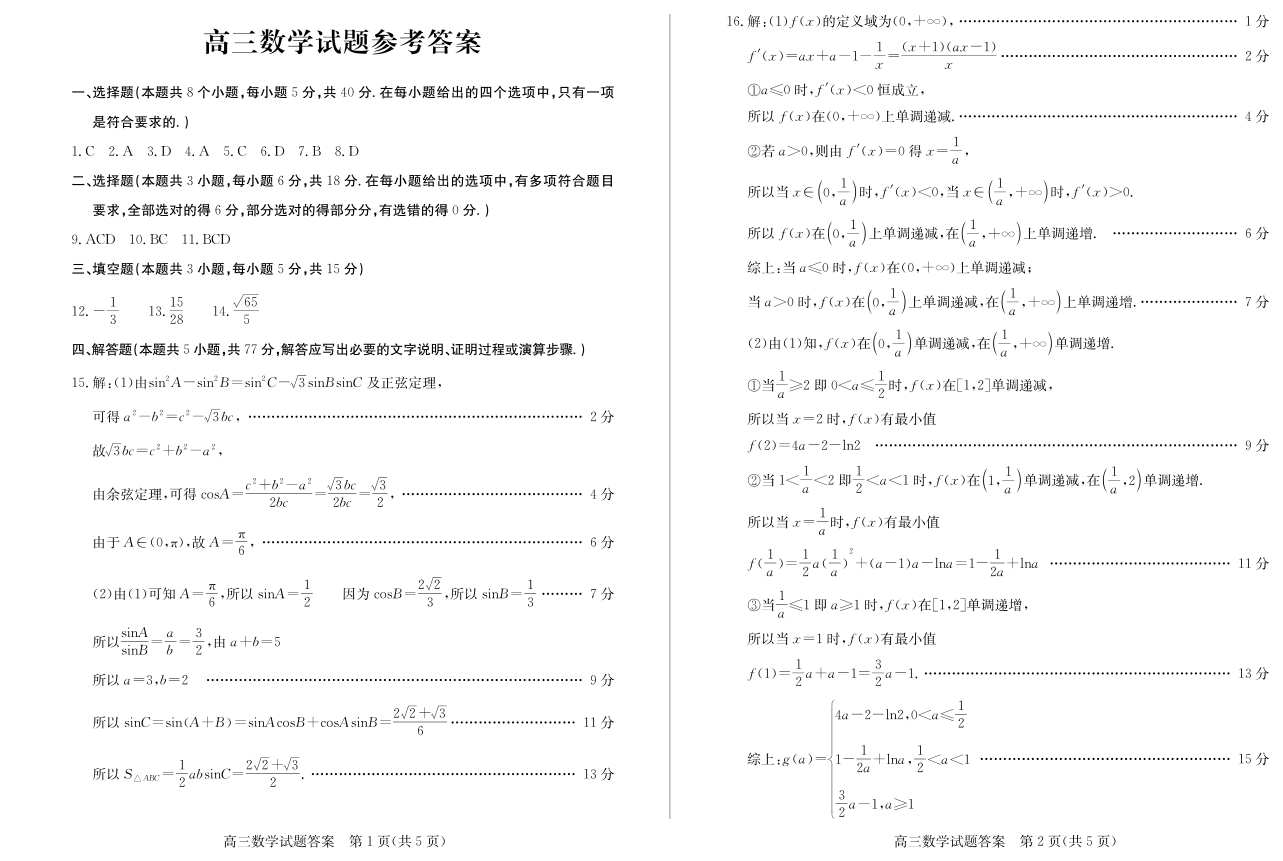 高三数学试题参考答案
一、选择题(本题共 8 个小题,每小题 5 分,共 40 分. 在每小题给出的四个选项中,只有一项
是符合要求的. )
1. C 2. A 3. D 4. A 5. C 6. D 7. B 8. D
二、选择题(本题共 3 小题,每小题 6 分,共 18 分. 在每小题给出的选项中,有多项符合题目
要求,全部选对的得 6 分,部分选对的得部分分,有选错的得 0 分. )
9. ACD 10. BC 11. BCD
三、填空题(本题共 3 小题,每小题 5 分,共 15 分)
12. −1/3 13. 15/28 14. √65/5
四、解答题(本题共 5 小题,共 77 分,解答应写出必要的文字说明、证明过程或演算步骤. )
15. 解:(1)由sin²A−sin²B=sin²C−√3sinBsinC 及正弦定理,
可得 a²−b²=c²−√3bc, …… 2 分
故√3bc=c²+b²−a²,
由余弦定理,可得 cosA=(c²+b²−a²)/2bc=√3bc/2bc=√3/2, …… 4 分
由于 A∈(0,π),故 A=π/6, …… 6 分
(2)由(1)可知 A=π/6,所以 sinA=1/2 因为 cosB=2√2/3,所以 sinB=1/3 …… 7 分
所以sinA/sinB=a/b=3/2,由 a+b=5
所以 a=3,b=2 …… 9 分
所以 sinC=sin(A+B)=sinAcosB+cosAsinB=(2√2+√3)/6 …… 11 分
所以 S△ABC=1/2absinC=(2√2+√3)/2. …… 13 分
高三数学试题答案 第 1 页(共 5 页)
16. 解:(1)f(x)的定义域为(0,+∞), …… 1 分
f′(x)=ax+a−1−1/x=(x+1)(ax−1)/x …… 2 分
①a⩽0 时,f′(x)<0 恒成立,
所以 f(x)在(0,+∞)上单调递减. …… 4 分
②若 a>0,则由 f′(x)=0 得 x=1/a,
所以当 x∈(0,1/a)时,f′(x)<0,当 x∈(1/a,+∞)时,f′(x)>0.
所以 f(x)在(0,1/a)上单调递减,在(1/a,+∞)上单调递增. …… 6 分
综上:当 a⩽0 时,f(x)在(0,+∞)上单调递减;
当 a>0 时,f(x)在(0,1/a)上单调递减,在(1/a,+∞)上单调递增. …… 7 分
(2)由(1)知,f(x)在(0,1/a)单调递减,在(1/a,+∞)单调递增.
①当1/a⩾2 即 0<a⩽1/2时,f(x)在[1,2]单调递减,
所以当 x=2 时,f(x)有最小值
f(2)=4a−2−ln2 …… 9 分
②当 1<1/a<2 即1/2<a<1 时,f(x)在(1,1/a)单调递减,在(1/a,2)单调递增.
所以当 x=1/a时,f(x)有最小值
f(1/a)=1/2a(1/a)²+(a−1)a−lna=1−1/2a+lna …… 11 分
③当1/a⩽1 即 a⩾1 时,f(x)在[1,2]单调递增,
所以当 x=1 时,f(x)有最小值
f(1)=1/2a+a−1=3/2a−1. …… 13 分
4a−2−ln2,0<a⩽1/2
综上:g(a)={1−1/2a+lna,1/2<a<1 …… 15 分
3/2a−1,a⩾1
高三数学试题答案 第 2 页(共 5 页)